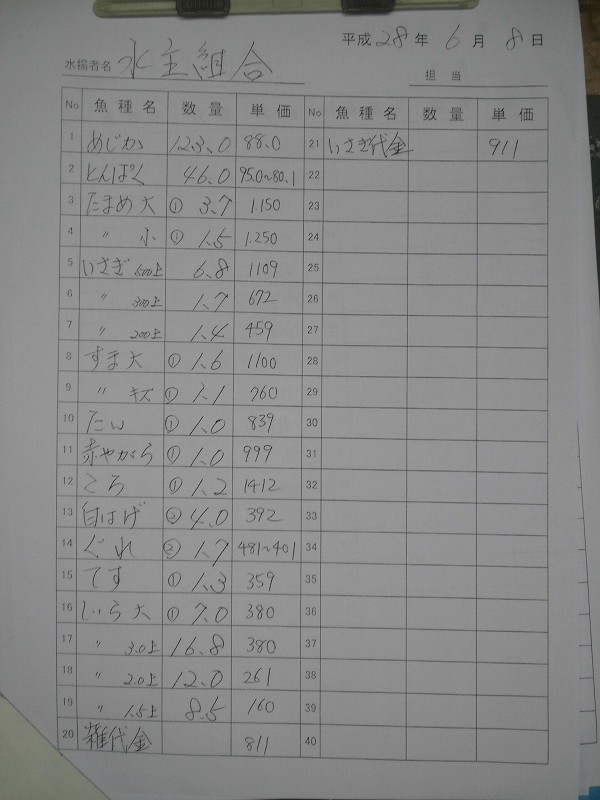 平成 28 年 6 月 8 日
水揚者名 水主組合
担当
No 魚種名 数量 単価 No 魚種名 数量 単価
1 めじか 123.0 88.0 21 いさぎ代金 911
2 とんぱく 46.0 95.0~80.1 22
3 たまめ大 ① 3.7 1.150 23
4 〃 小 ① 1.5 1.250 24
5 いさぎ 500上 6.8 1109 25
6 〃 300上 1.7 672 26
7 〃 200上 1.4 459 27
8 すま大 ① 1.6 1100 28
9 〃 キズ ① 1.1 760 29
10 たい ① 1.0 839 30
11 赤やがら ① 1.0 999 31
12 ころ ① 1.2 1412 32
13 白はげ ② 4.0 392 33
14 ぐれ ② 1.7 481~401 34
15 てす ① 1.3 359 35
16 しいら大 ① 7.0 380 36
17 〃 3.0上 16.8 380 37
18 〃 2.0上 12.0 261 38
19 〃 1.5上 8.5 160 39
20 雑代金 811 40